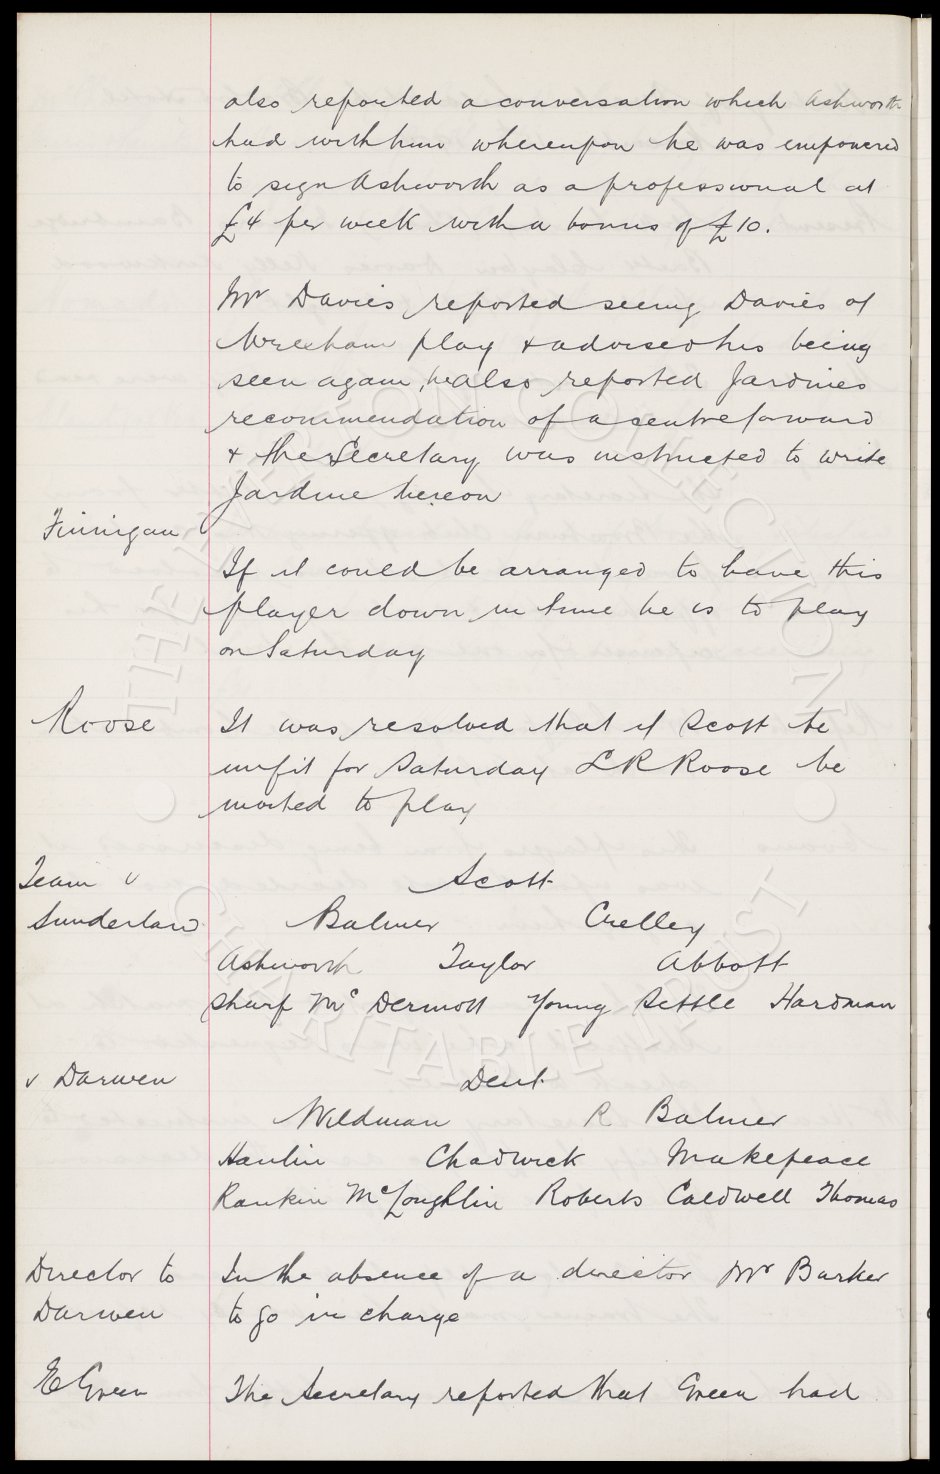 also reported a conversation which Ashworth
had with him whereupon he was empowered
to sign Ashworth as a professional at
£4 per week with a bonus of £10.
Mr Davies reported seeing Davies of
Wrexham play & advised his being
seen again, he also reported Jardines
recommendation of a centre forward
& the Secretary was instructed to write
Jardine hereon
Finnigan
If it could be arranged to have this
player down in time he is to play
on Saturday
Roose It was resolved that if Scott be
unfit for Saturday L R Roose be
invited to play
Team v Scott
Sunderland Balmer Crelley
Ashworth Taylor Abbott
Sharp McDermott Young Settle Hardman
v Darwen Dent
Wildman R Balmer
Hanlin Chadwick Makepeace
Rankin McLoughlin Roberts Caldwell Thomas
Director to In the absence of a director Mr Barker
Darwen to go in charge
E Green The Secretary reported that Green had
THE EVERTON COLLECTION
CHARITABLE TRUST